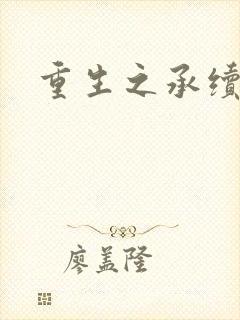 重生之承续
廖盖隆